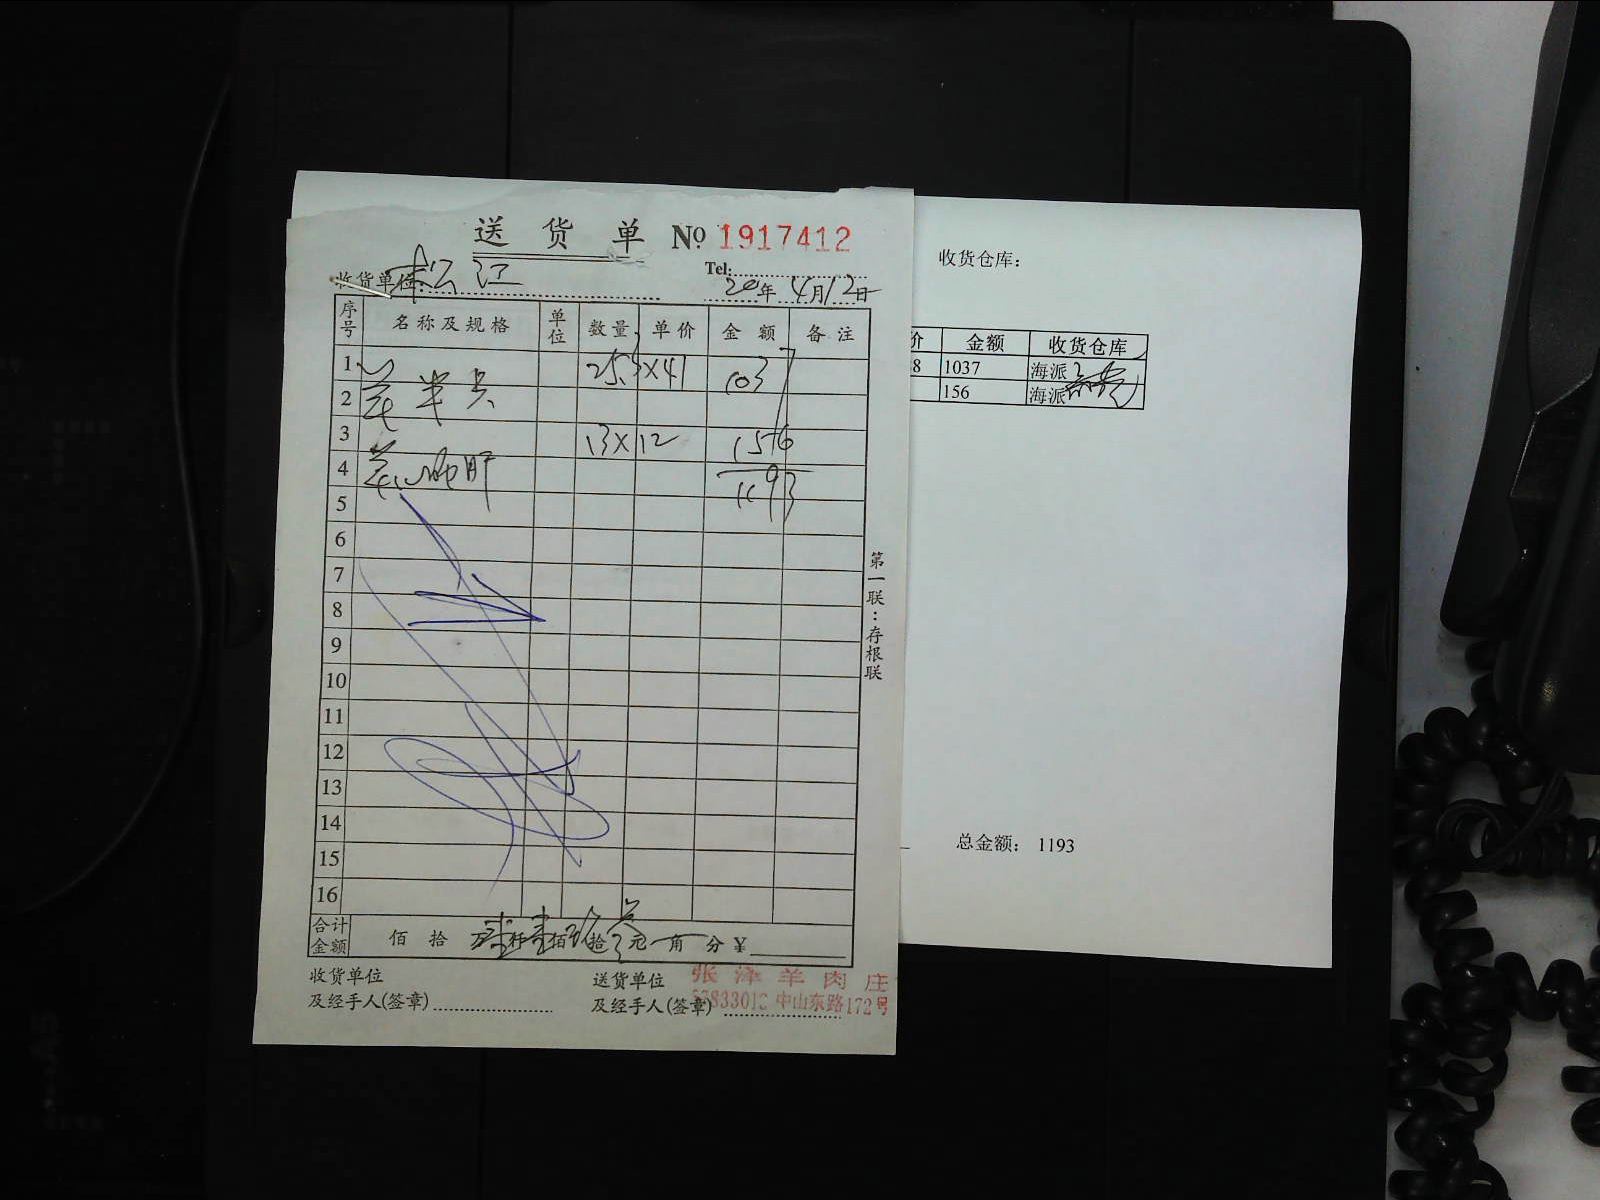 送货单 № 1917412
收货单位: 松江 Tel:
20年 4月12日
序号 名称及规格 单位 数量 单价 金额 备注
1 25.3×41 1037
2 羊
3 13×12 156
4 1193
5
6
7
8
9
10
11
12
13
14
15
16
合计金额 佰 拾 万壹仟壹佰玖拾叁元 角 分 ¥
收货单位 送货单位 张泽羊肉庄
及经手人(签章) 及经手人(签章) 中山东路172号
第一联:存根联
收货仓库:
价 金额 收货仓库
8 1037 海派
156 海派
总金额: 1193